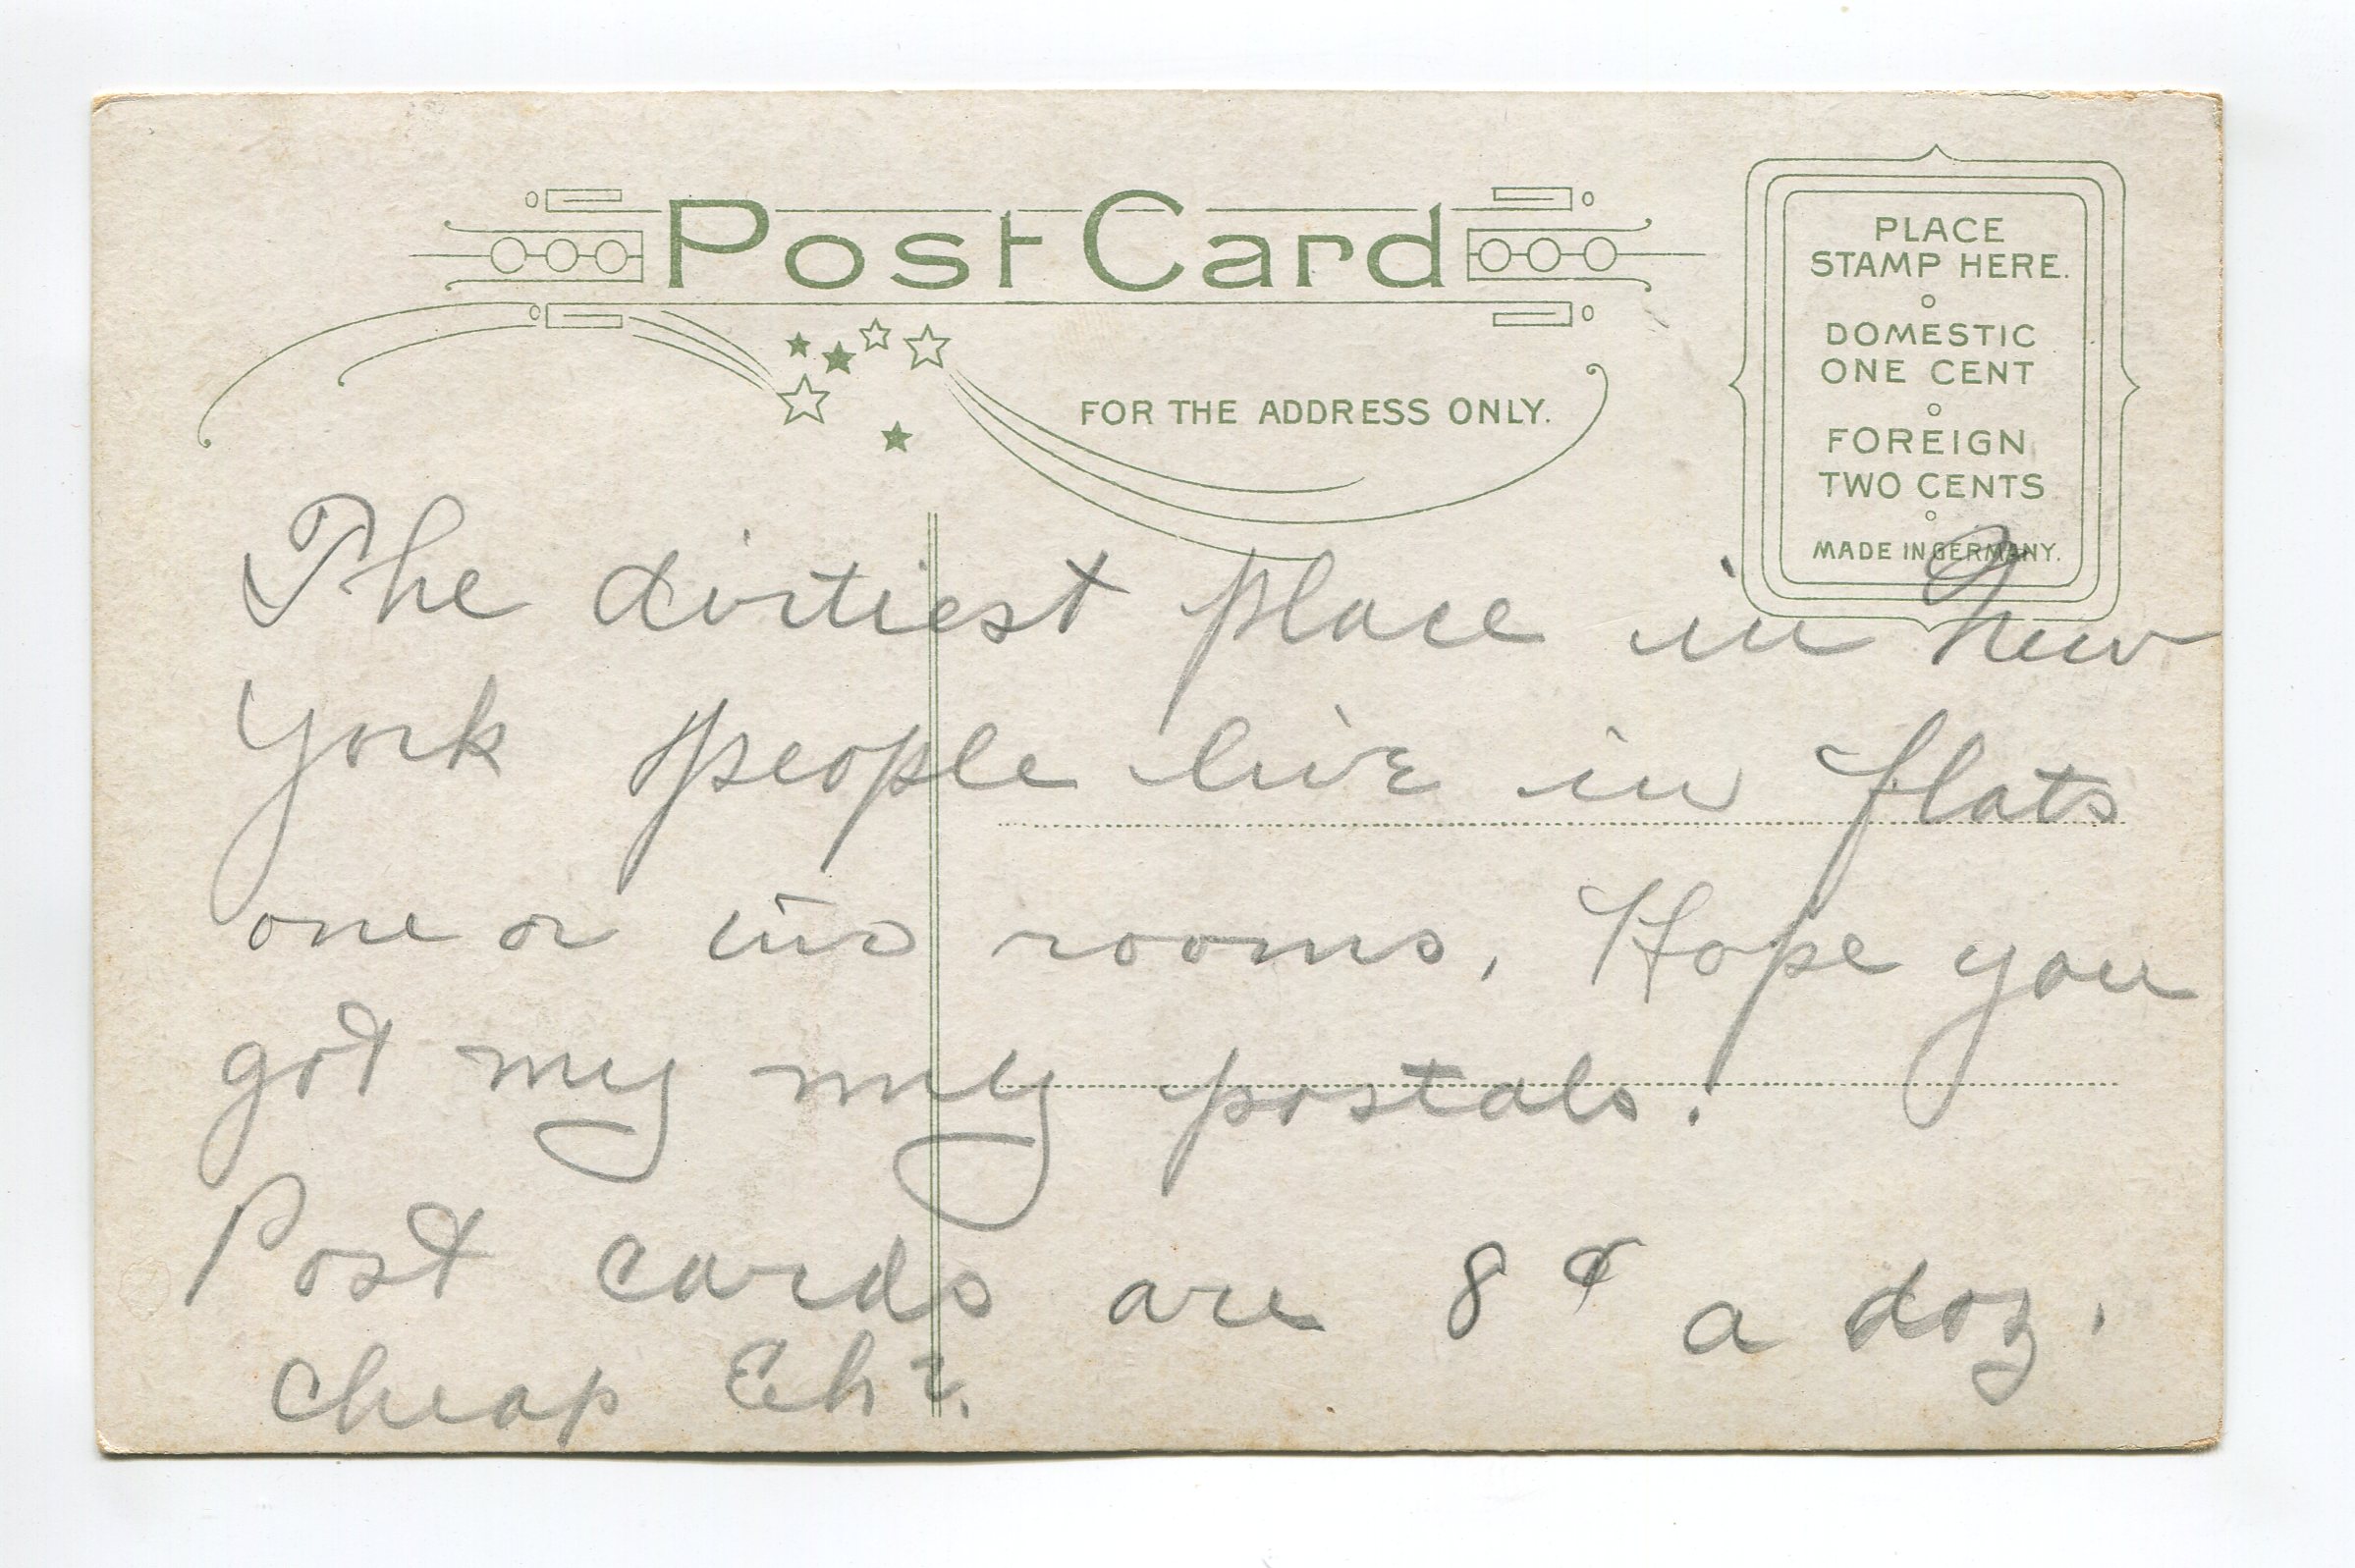 Post Card
FOR THE ADDRESS ONLY.
PLACE
STAMP HERE.
DOMESTIC
ONE CENT
FOREIGN
TWO CENTS
MADE IN GERMANY.
The dirtiest place in New
York people live in flats
one or two rooms. Hope you
got my my postals.
Post cards are 8¢ a doz.
Cheap Eh?